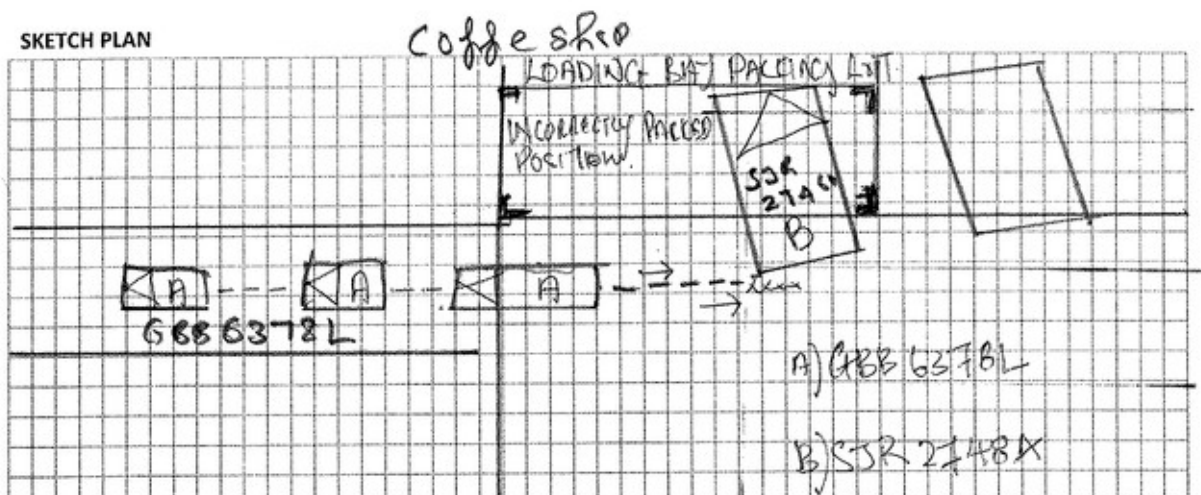 SKETCH PLAN
Coffe shop
LOADING BAY PACKING LOT
INCORRECTLY PACKED
POSITION.
SJR
B
A
A
A
GBB 6378L
A) GBB 6378L
B) SJR 2748X